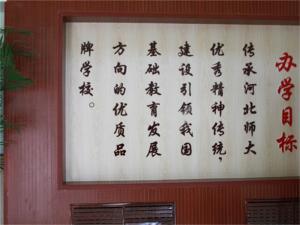 办学目标
传承河北师大
优秀精神传统，
建设引领我国
基础教育发展
方向的优质品
牌学校。